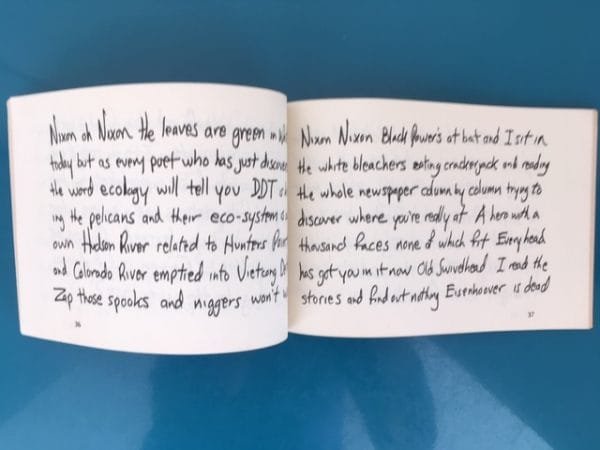 Nixon oh Nixon the leaves are green in
today but as every poet who has just discove
the word ecology will tell you DDT
ing the pelicans and their eco-system
own Hudson River related to Hunters
and Colorado River emptied into Vietcong
Zap those spooks and niggers won't
36
Nixon Nixon Black Power's at bat and I sit in
the white bleachers eating crackerjack and reading
the whole newspaper column by column trying to
discover where you're really at A hero with a
thousand faces none of which fit Everyhead
has got you in it now Old Swivelhead I read the
stories and find out nothing Eisenhoover is dead
37